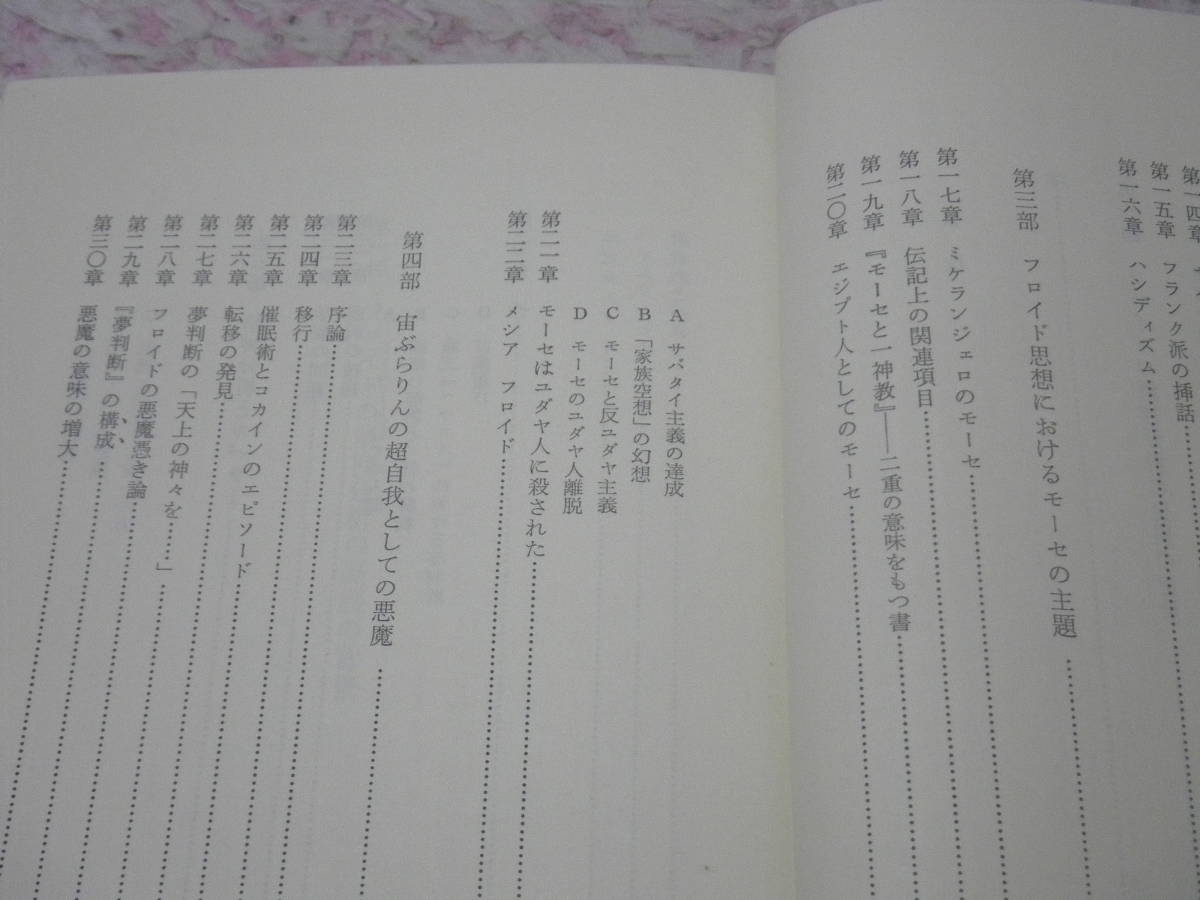 第一四章
第一五章 フランク派の挿話
第一六章 ハシディズム
第三部 フロイド思想におけるモーセの主題
第一七章 ミケランジェロのモーセ
第一八章 伝記上の関連項目
第一九章 『モーセと一神教』——二重の意味をもつ書
第二〇章 エジプト人としてのモーセ
A サバタイ主義の達成
B 「家族空想」の幻想
C モーセと反ユダヤ主義
D モーセのユダヤ人離脱
第二一章 モーセはユダヤ人に殺された
第二二章 メシア フロイド
第四部 宙ぶらりんの超自我としての悪魔
第二三章 序論
第二四章 移行
第二五章 催眠術とコカインのエピソード
第二六章 転移の発見
第二七章 夢判断の「天上の神々を……」
第二八章 フロイドの悪魔憑き論
第二九章 『夢判断』の構成
第三〇章 悪魔の意味の増大